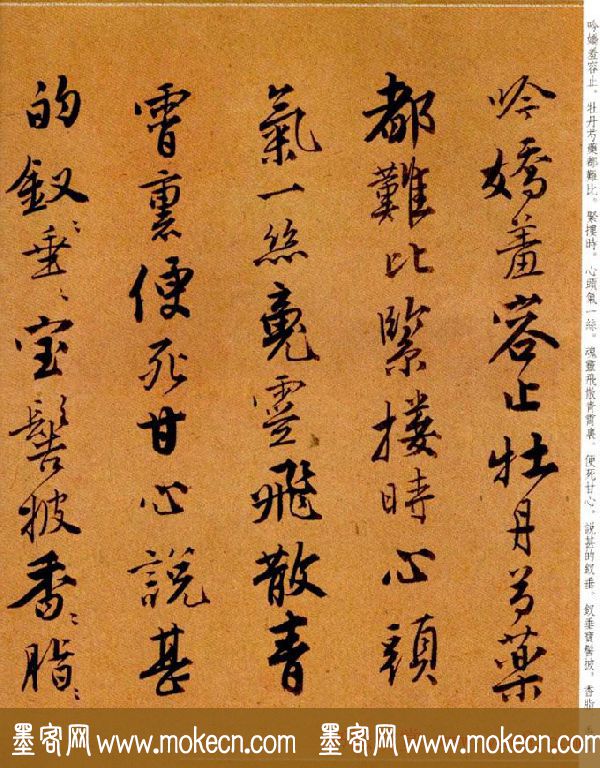 吟嬌羞容止牡丹芍藥
都難比緊摟時心頭
氣一絲魂靈飛散青
霄裏便死甘心說甚
的釵垂〻宝髻披香〻脂〻
吟嬌羞容止、牡丹芍藥都難比。緊摟時。心頭氣一絲。魂靈飛散青霄裏、便死甘心、說甚的釵垂、釵垂寶髻披、香脂
墨客网 www.mokecn.com 墨客网 www.mokecn.com